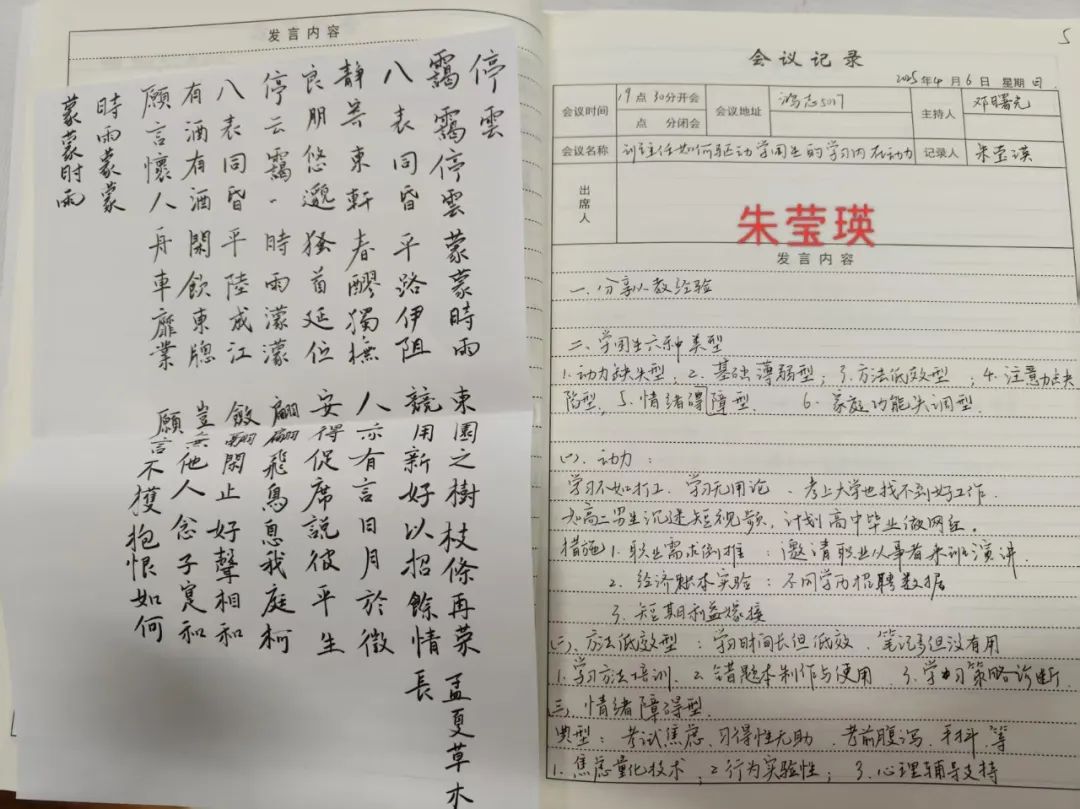 发言内容
停雲
靄靄停雲 蒙蒙時雨
八表同昏 平路伊阻
靜寄東軒 春醪獨撫
良朋悠邈 搔首延佇
停云靄、時雨濛濛
八表同昏 平陸成江
有酒有酒 閑飲東牕
願言懷人 舟車靡業
時雨蒙蒙
蒙蒙时雨
東園之樹 枝條再荣
競用新好 以招餘情
人亦有言 日月於徵
安得促席 説彼平生
翩翩飛鳥 息我庭柯
斂翮閑止 好聲相和
豈无他人 念子寔和
願言不獲 抱恨如何
孟夏草木
長
5
会议记录
2025年4月6日 星期日
会议时间 19点30分开会 会议地址 鸿志5017 主持人 邓曙光
点 分闭会
会议名称 训主任如何驱动学困生的学习内在动力 记录人 朱莹瑛
出席人
朱莹瑛
发言内容
一、分享从教经验
二、学困生六种类型
1.动力缺失型；2.基础薄弱型；3.方法低效型；4.注意力缺
陷型、5.情绪碍障型 6.家庭功能失调型
(一)、动力：
学习不如打工、学习无用论、考上大学也找不到好工作.
如高二男生沉迷短视频，计划高中毕业做网红。
措施1.职业需求倒推：邀请职业从事者来训主演讲
2.经济账本实验：不同学历招聘数据
3.短期利益嫁接
(二)、方法低效型：学习时间长但低效、笔记多但没有用
1.学习方法培训、2.错题本制作与使用 3.学习策略诊断.
三、情绪障碍型.
典型：考试焦虑、习得性无助、考前腹泻、手抖、等
1.焦虑量化技术；2行为实验性；3.心理辅导支持